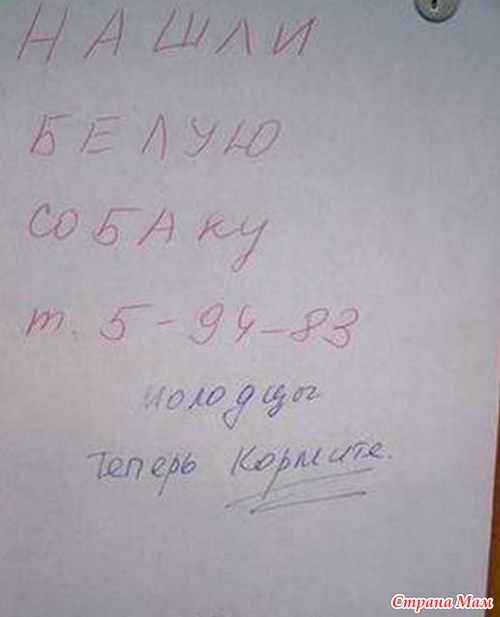 НАШЛИ
БЕЛУЮ
СОБАКУ
т. 5-94-83
молодцы
Теперь Кормите.
Страна Мам